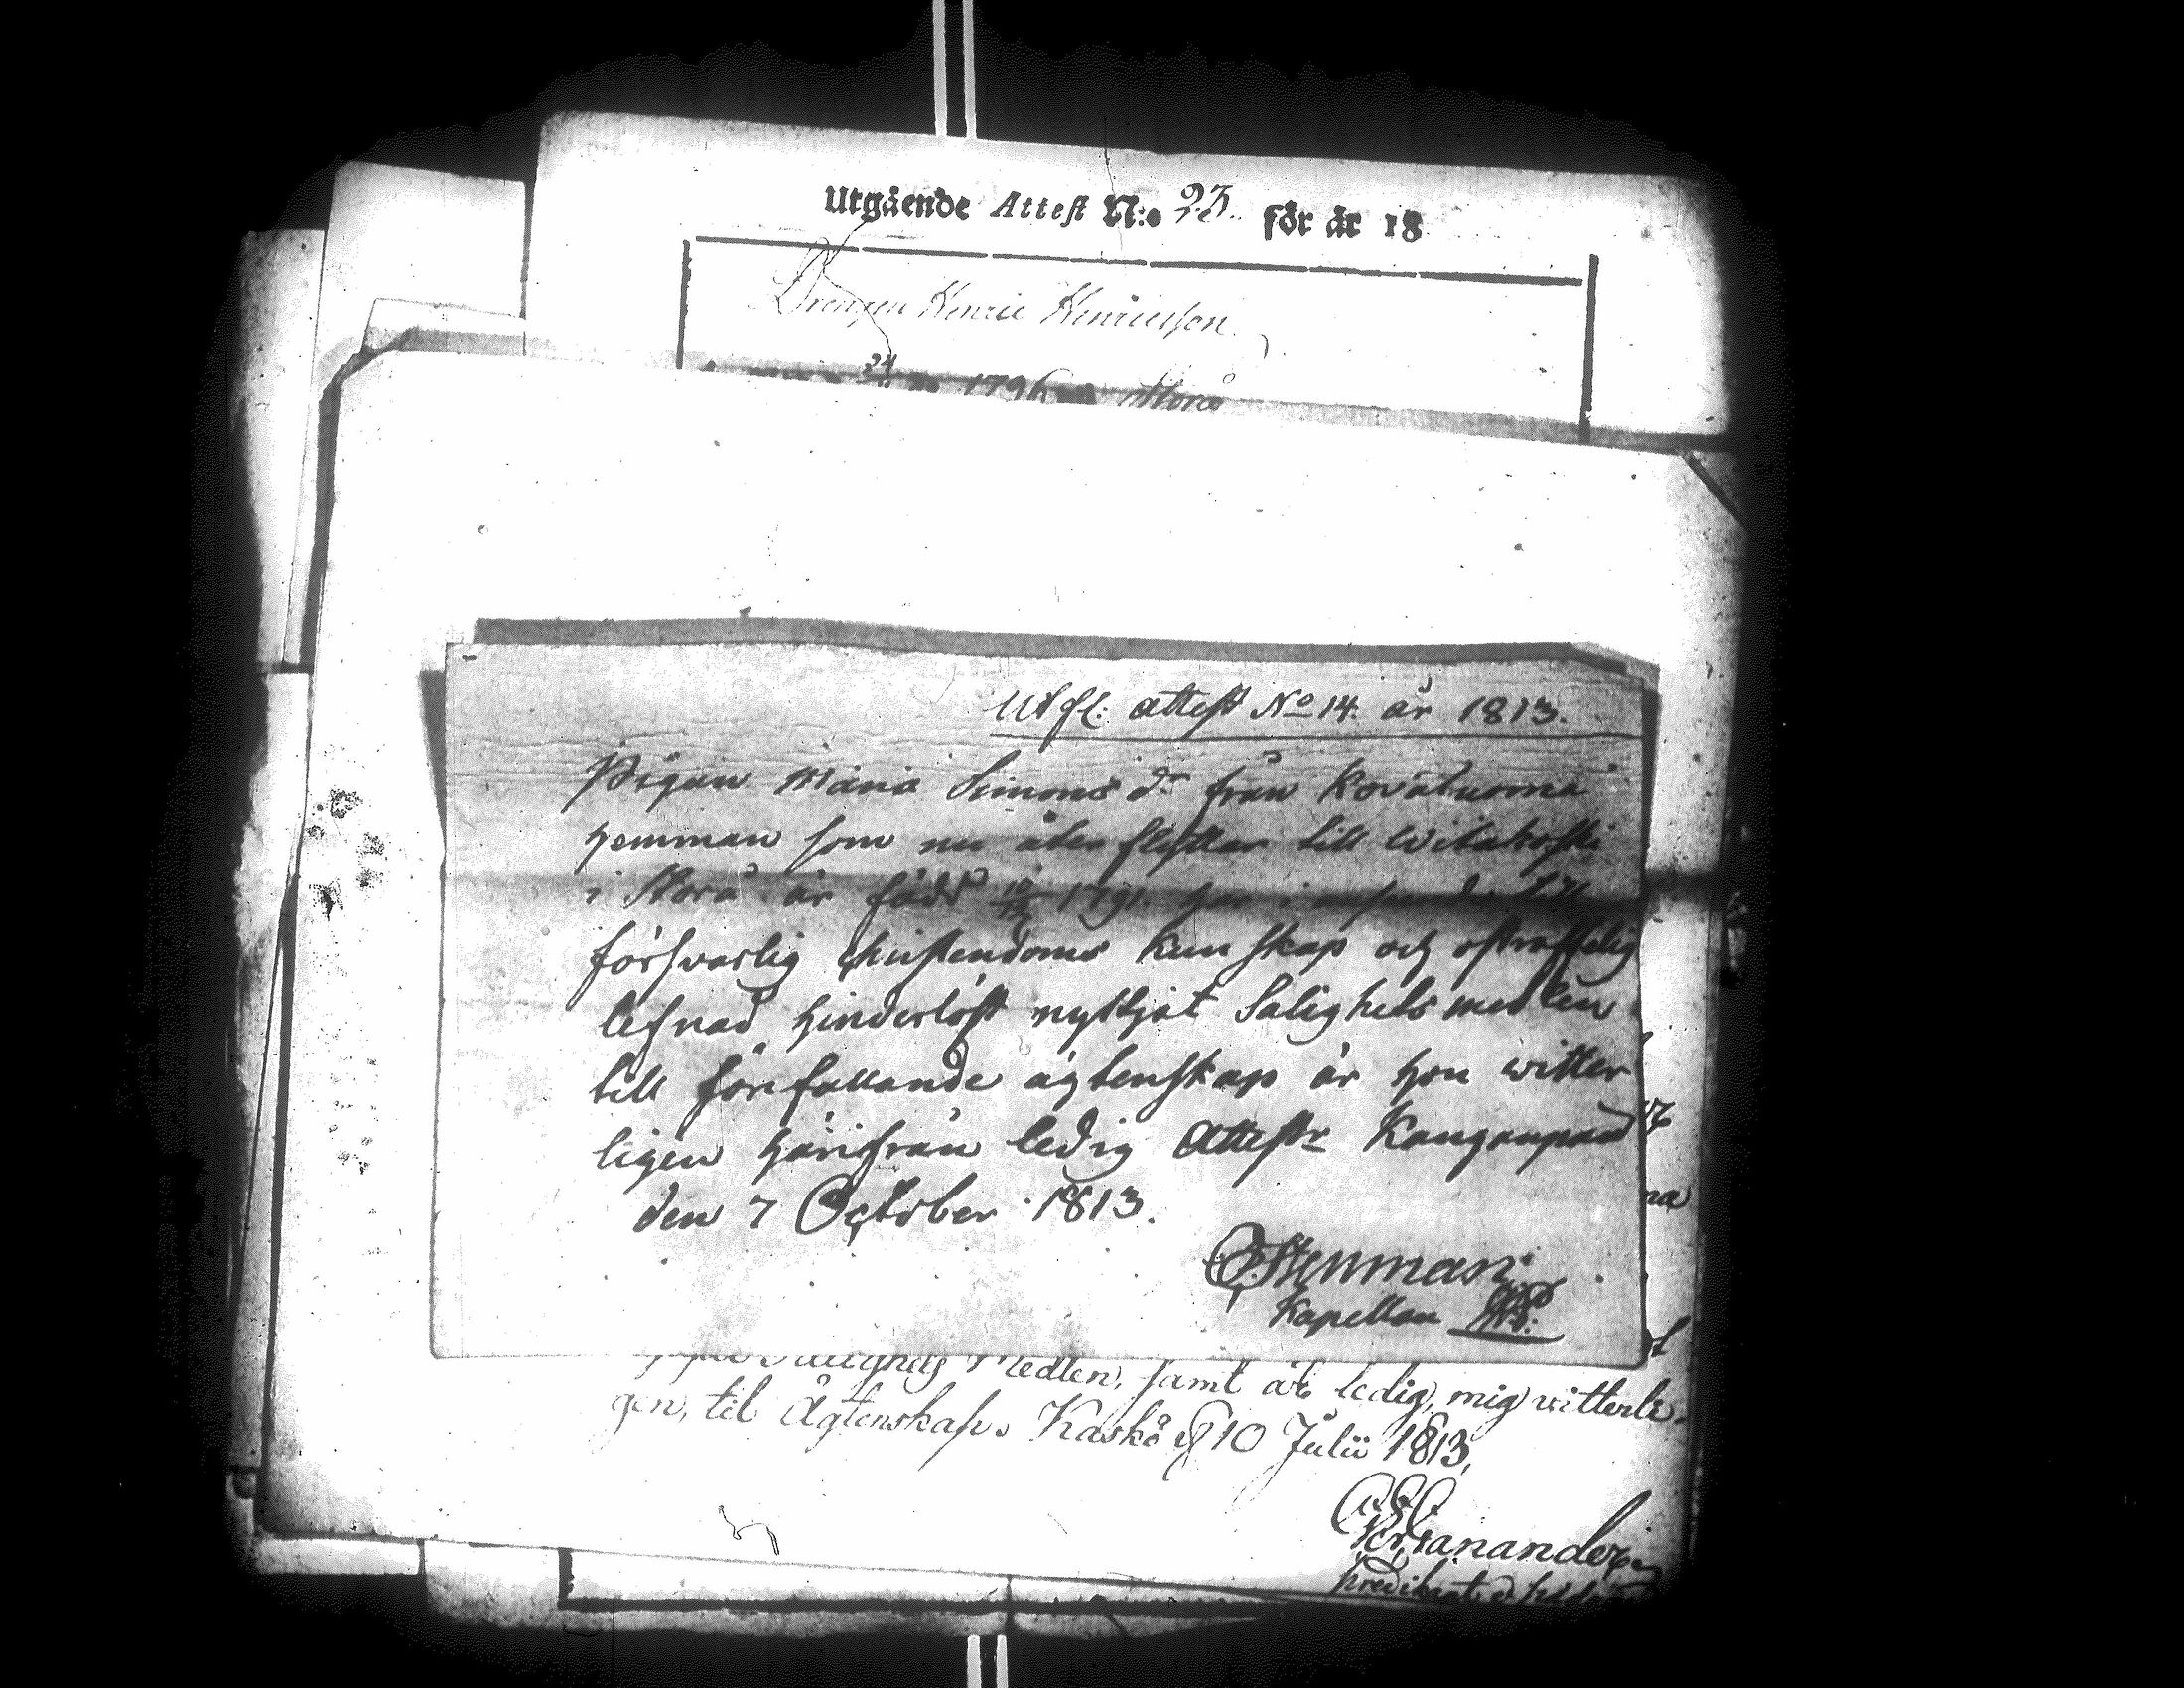 Utgående Attest N:o 23. för år 18
Drengen Henric Henricsson
24 1796 Storå
Utfl: attest No 14. år 1813.
Pigan Maria Simons dr från Kovaluoma
hemman som nu åter flyttar till Witakoski
i Storå är född 10 1791. har i
försvarlig christendoms kunskap och ostraffelig
lefnad hinderlöst nyttjat Salighets medlen
till förefallande ägtenskap är hon witter
ligen härifrån ledig Attestr Kangанpää
den 7 October 1813.
Stenman
Kapellan
Medlen, samt är ledig, mig vitterli-
gen, til Ägtenskap. Kaskö d 10 Julii 1813,